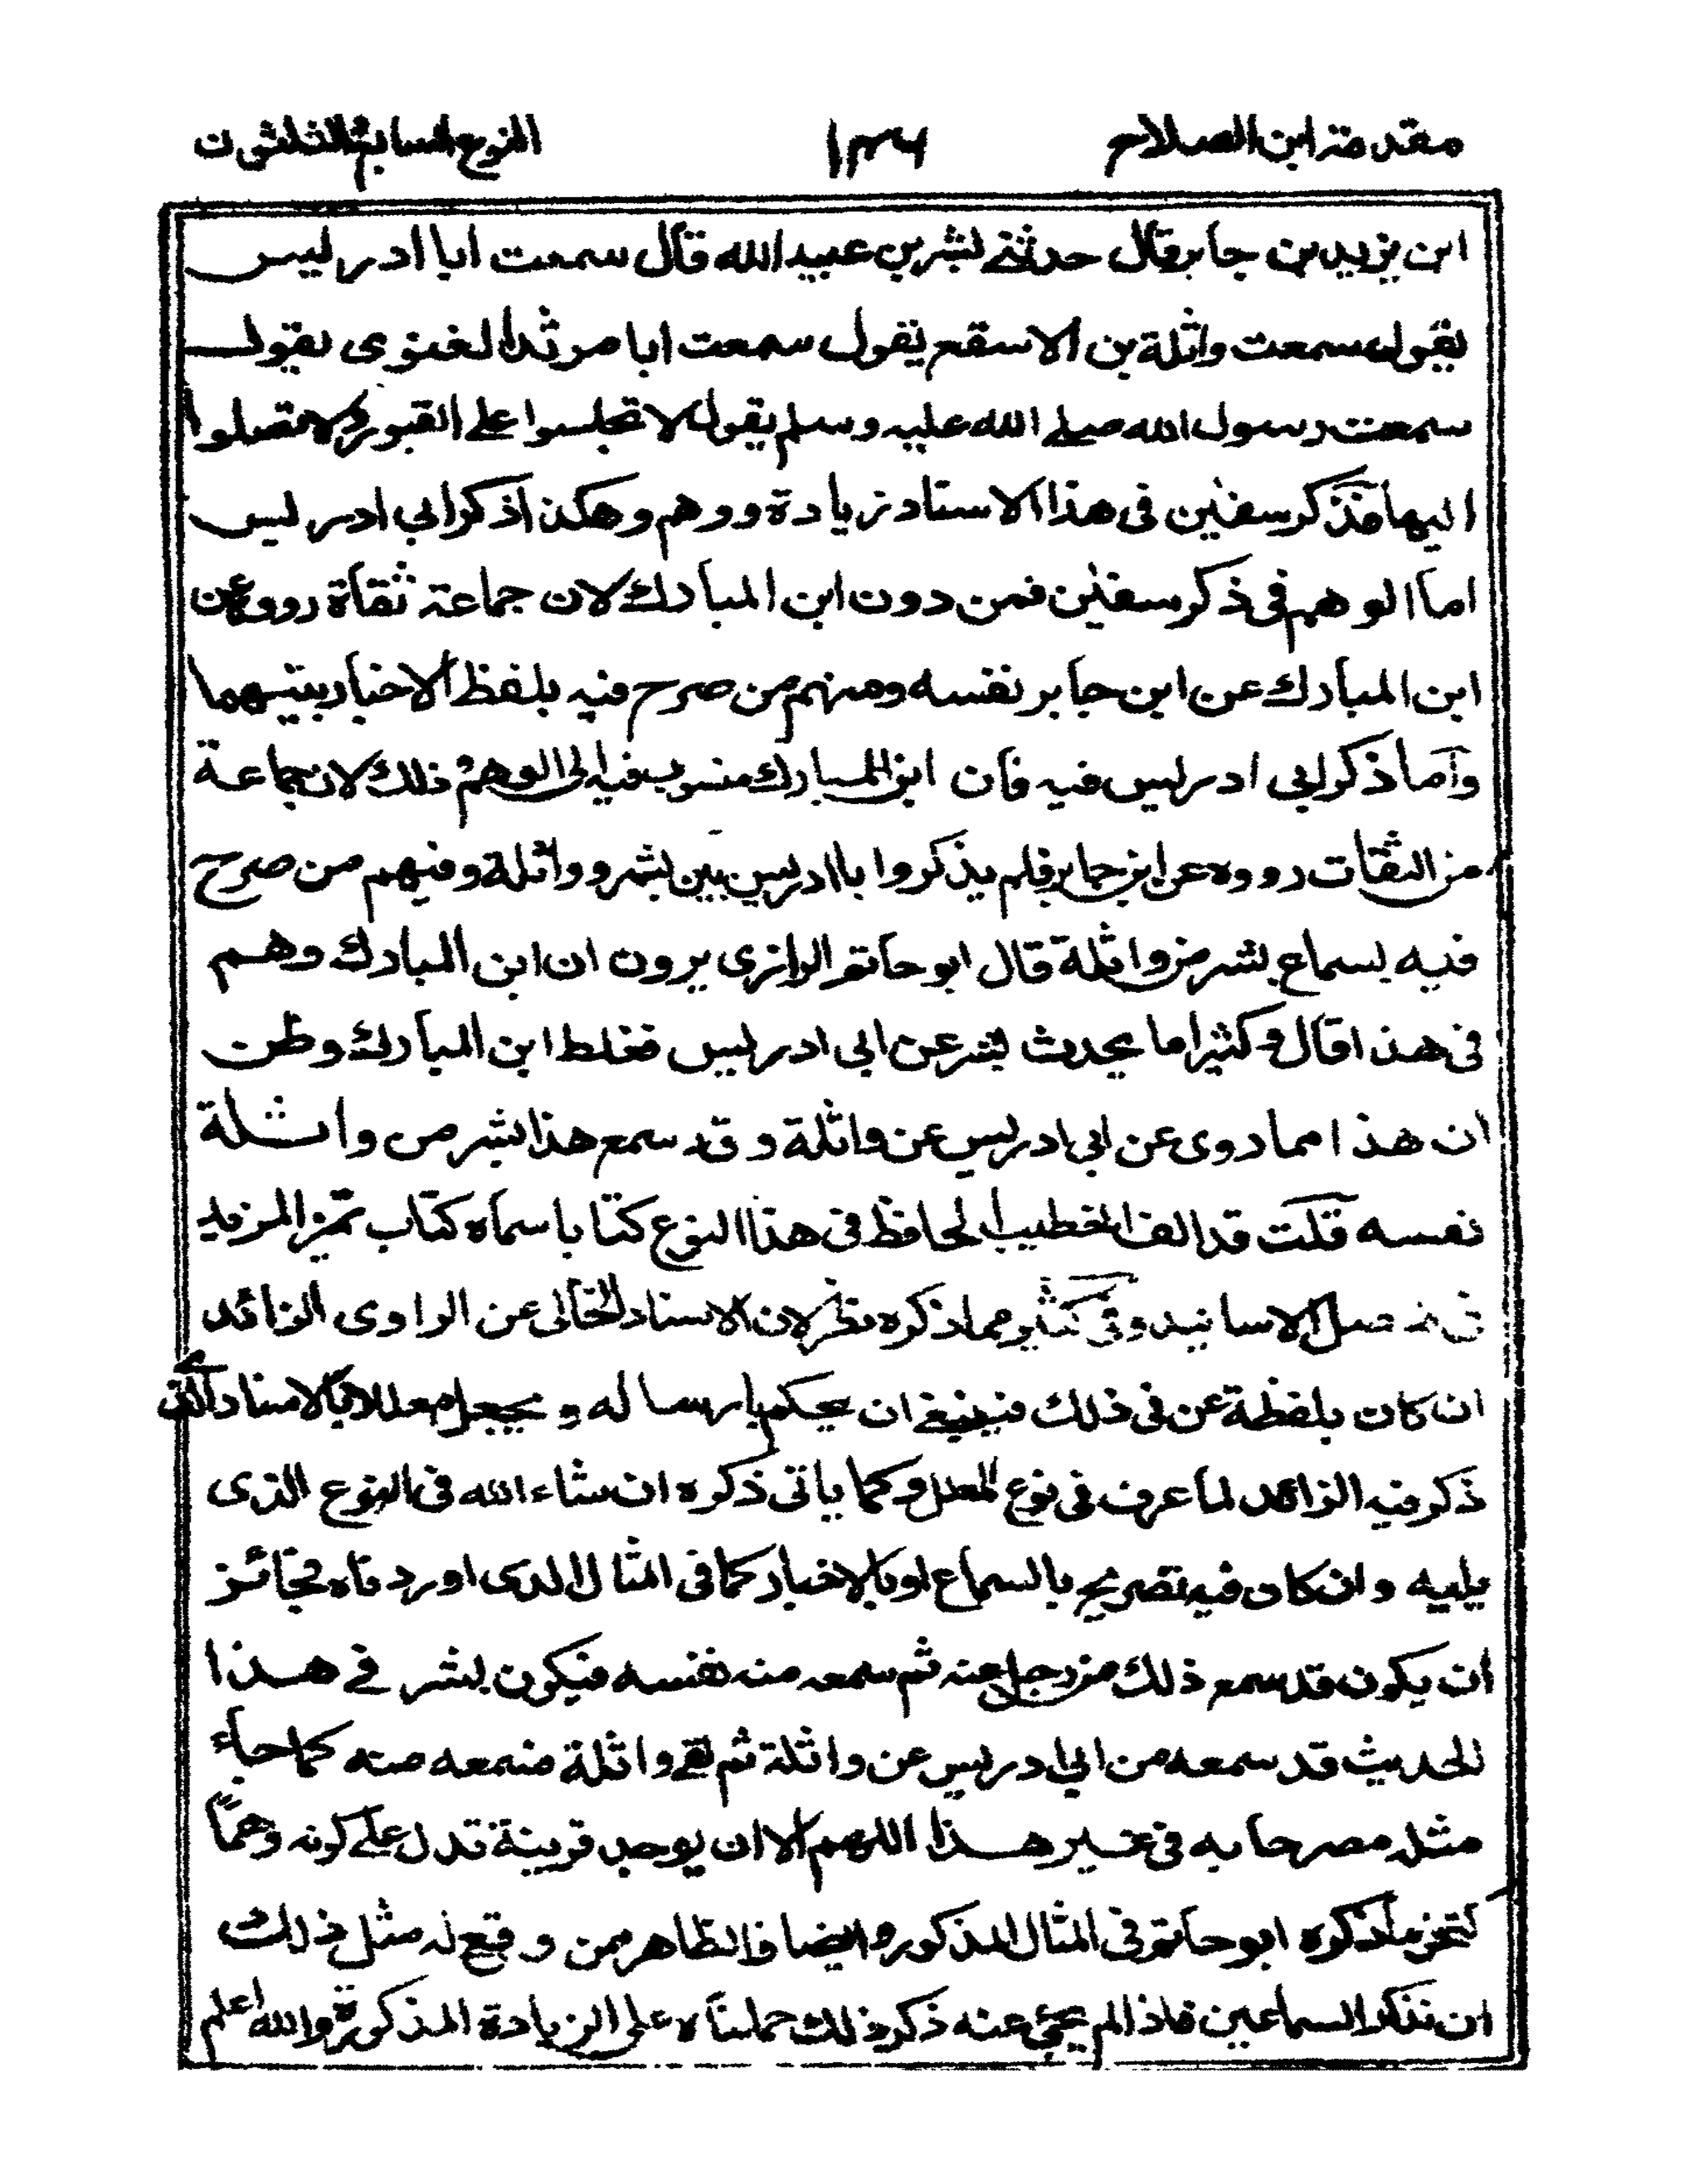 مقدمة ابن الصلاح
١٣٦
النوع السابع والثلثون
ابن يزيد بن جابر قال حدثني بشر بن عبيد الله قال سمعت ابا ادريس
يقول سمعت واثلة بن الاسقع يقول سمعت ابا مرثد الغنوي يقول
سمعت رسول الله صلى الله عليه وسلم يقول لا تجلسوا على القبور ولا تصلوا
اليها فذكر سفين في هذا الاسناد زيادة ووهم وهكذا ذكر ابي ادريس
اما الوهم في ذكر سفين فمن دون ابن المبارك لان جماعة ثقاة رووه عن
ابن المبارك عن ابن جابر نفسه ومنهم من صرح فيه بلفظ الاخبار بينهما
وأما ذكر ابي ادريس فيه فان ابن المبارك منسوب فيه الى الوهم وذلك لان جماعة
من الثقات رووه عن ابن جابر فلم يذكروا با ادريس بين بشر وواثلة ومنهم من صرح
فيه بسماع بشر من واثلة قال ابو حاتم الرازي يرون ان ابن المبارك وهم
في هذا قال وكثيرا ما يحدث بشر عن ابي ادريس فغلط ابن المبارك وظن
ان هذا مما روى عن ابي ادريس عن واثلة وقد سمع هذا بشر من واثلة
نفسه قلت قد الف الخطيب الحافظ في هذا النوع كتابا سماه كتاب تميز المزيد
في متصل الاسانيد وفي كثير مما ذكره نظر لان الاسناد الخالي عن الراوي الزائد
ان كان بلفظة عن في ذلك فينبغي ان يحكم بارساله ويجعل معللا بالاسناد الذي
ذكر فيه الزائد لما عرف في نوع المعلل وكما ياتي ذكره ان شاء الله في النوع الذي
يليه وان كان فيه تصريح بالسماع او بالاخبار كما في المثال الذي اوردناه فجائز
ان يكون قد سمع ذلك من رجل عنه ثم سمعه منه نفسه فيكون بشر في هذا
الحديث قد سمعه من ابي ادريس عن واثلة ثم لقي واثلة فسمعه منه كما جاء
مثله مصرحا به في غير هذا اللهم الا ان يوجد قرينة تدل على كونه وهمًا
كنحو ما ذكره ابو حاتم في المثال المذكور وايضا فالظاهر ممن وقع له مثل ذلك
ان تذكر السماعين فاذا لم يجئ عنه ذكر ذلك حملناه على الزيادة المذكورة والله اعلم